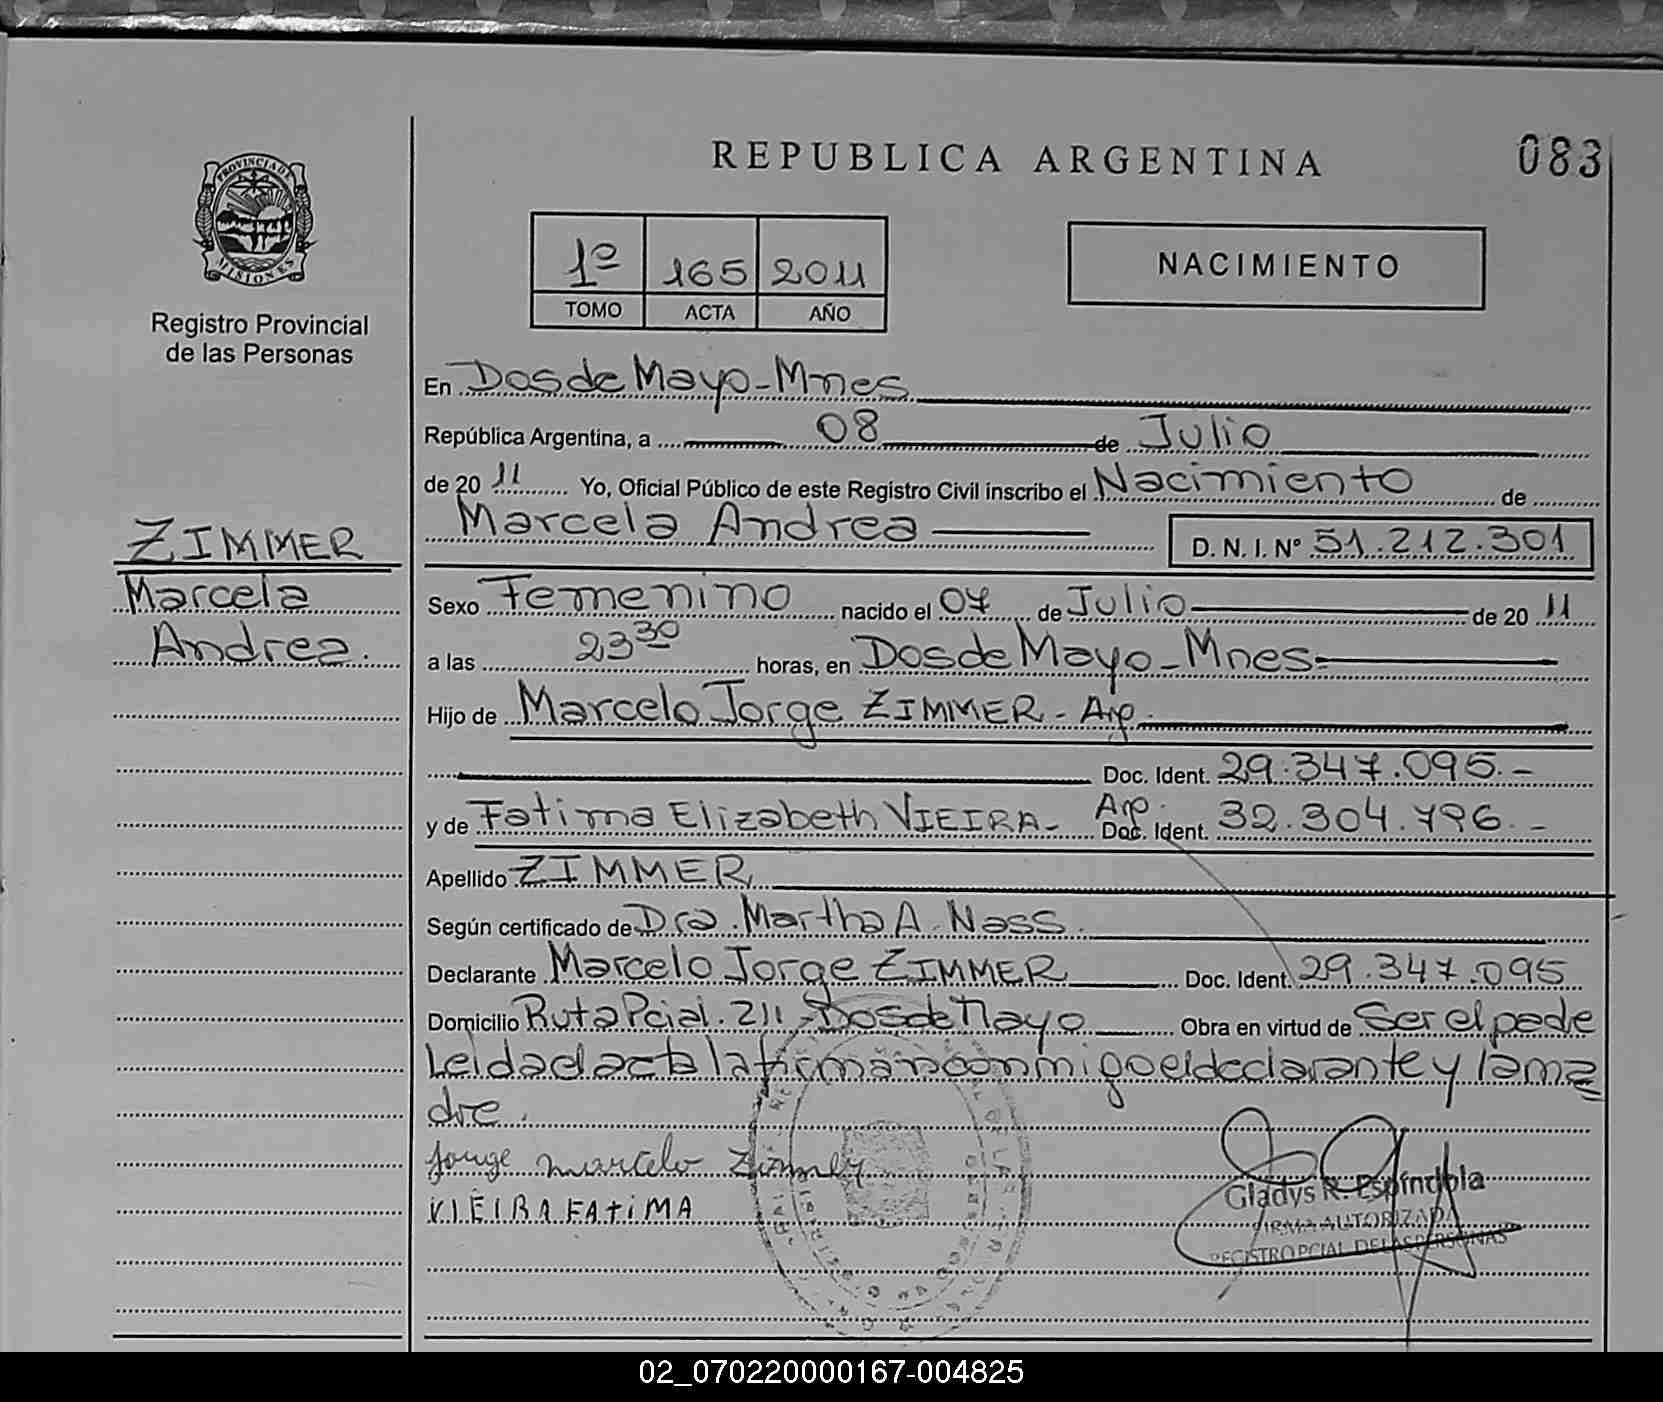 REPUBLICA ARGENTINA
083
PROVINCIA DE
MISIONES
Registro Provincial
de las Personas
1º 165 2011
TOMO ACTA AÑO
NACIMIENTO
En Dos de Mayo - Mnes
República Argentina, a 08 de Julio
de 20 11 Yo, Oficial Público de este Registro Civil inscribo el Nacimiento de
Marcela Andrea D. N. I. Nº 51.212.301
ZIMMER
Marcela
Andrea.
Sexo Femenino nacido el 07 de Julio de 20 11
a las 23 30 horas, en Dos de Mayo - Mnes
Hijo de Marcelo Jorge ZIMMER - Arg.
Doc. Ident. 29.347.095.-
y de Fatima Elizabeth VIEIRA - Arg. Doc. Ident. 32.304.796.-
Apellido ZIMMER
Según certificado de Dra. Martha A. Nass.
Declarante Marcelo Jorge ZIMMER Doc. Ident. 29.347.095
Domicilio Ruta Pcial. 211 - Dos de Mayo Obra en virtud de Ser el padre
Leida el acta la firman conmigo el declarante y la ma
dre.
Jorge marcelo Zimmer
VIEIRA FATIMA
Gladys R. Espíndola
FIRMA AUTORIZADA
REGISTRO PCIAL DE LAS PERSONAS
02_070220000167-004825